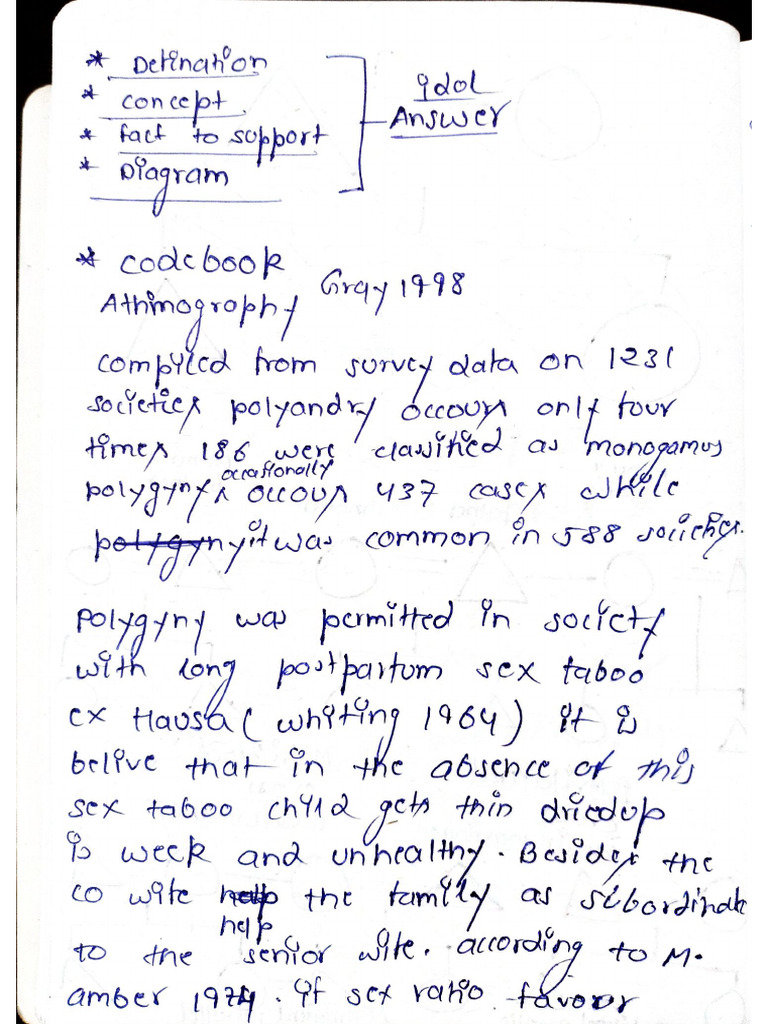 * Defination
* concept
* fact to support
* Diagram
idol
Answer
* codebook
Gray 1998
Athinography
compiled from survey data on 1231
societies polyandry occours only four
times 186 were classified as monogamus
occasionally
polygyny occours 437 cases while
polygyny it was common in 588 societies.
polygyny was permitted in society
with long postpartum sex taboo
ex Hausa (whiting 1964) it is
belive that in the absence of this
sex taboo child gets thin driedup
is week and unhealthy. Besides the
co wife help the family as subordinate
help
to the senior wife. according to M.
amber 1974. if sex ratio favour